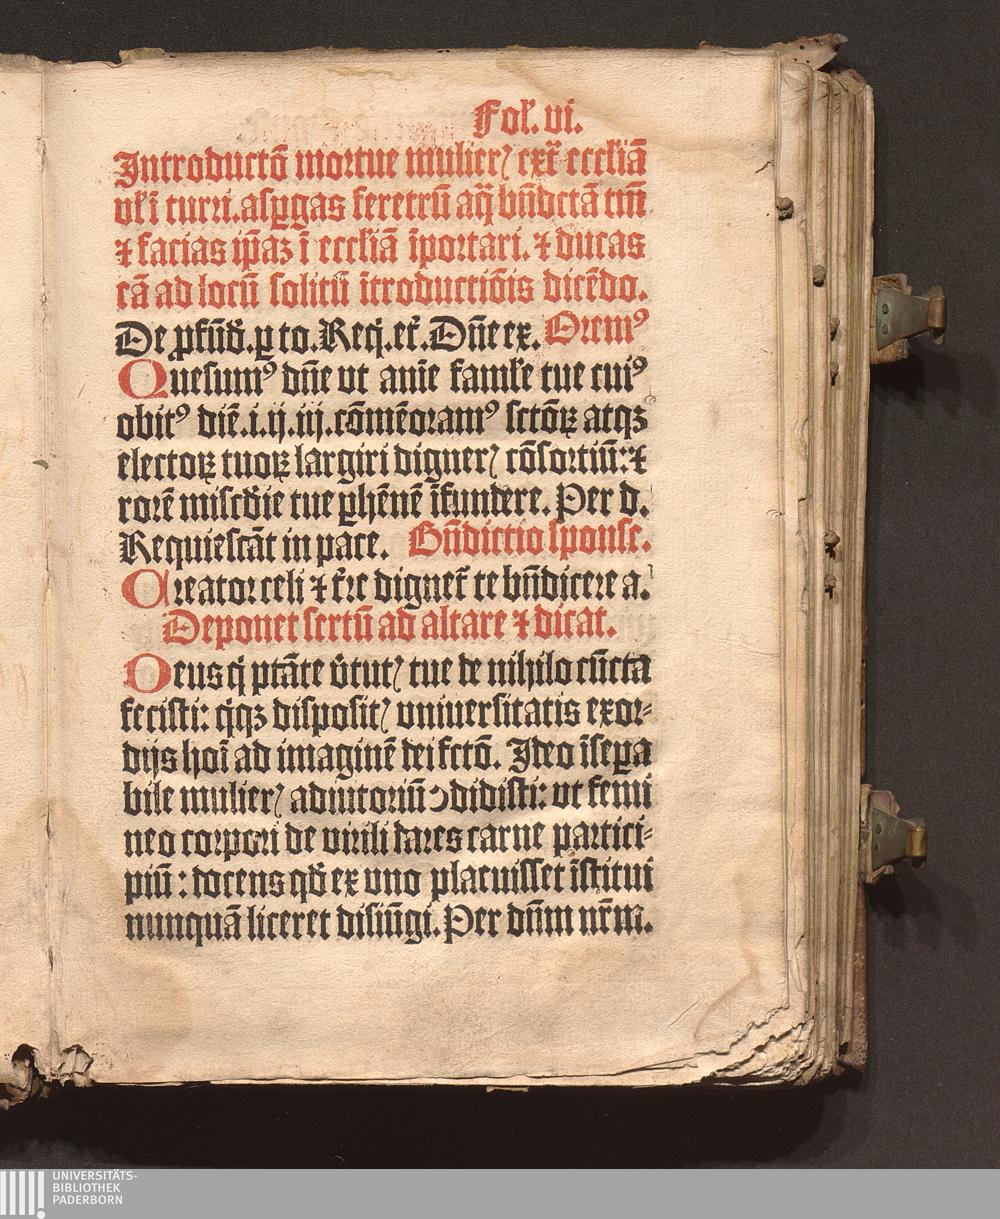 Fol. vi.
Introductō mortue mulierꝭ extͣ eccliā
vl̓ i turri. aspgas feretrū aq̄ bn̄dctā tm̄
⁊ facias ip̄az ī eccliā īportari. ⁊ ducas
eā ad locū solitū ītroductiōis dicēdo.
De ꝓfūd. ꝑ to. Req̇. et̓. Dn̄e ex. Oremꝰ
Quesumꝰ dn̄e vt anīe famĺe tue cuiꝰ
obitꝰ diē .i. ij. iij. cōmēoramꝰ sctōꝝ atqꝫ
electoꝝ tuoꝝ largiri dignerꝭ cōsortiū: ⁊
rorē miscd̓ie tue ꝑhēnē īfundere. Per d.
Requiescāt in pace. Bn̄dictio sponse.
Creator celi ⁊ t̓re dignet̓ te bn̄dicere a.
Deponet sertū ad altare ⁊ dicat.
Deus q̇ ptāte v̓tutꝭ tue de nihilo cūcta
fecisti: q̇qꝫ dispositꝭ vniuersitatis exor⸗
dijs hoī ad imaginē dei fctō. Ideo īseꝑa
bile mulierꝭ adiutoriū ↄdidisti: vt femi
neo corpori de virili dares carne partici⸗
piū: docens qd̓ ex vno placuisset īstitui
nunquā liceret disiūgi. Per dn̄m nr̄m.
UNIVERSITÄTS-
BIBLIOTHEK
PADERBORN